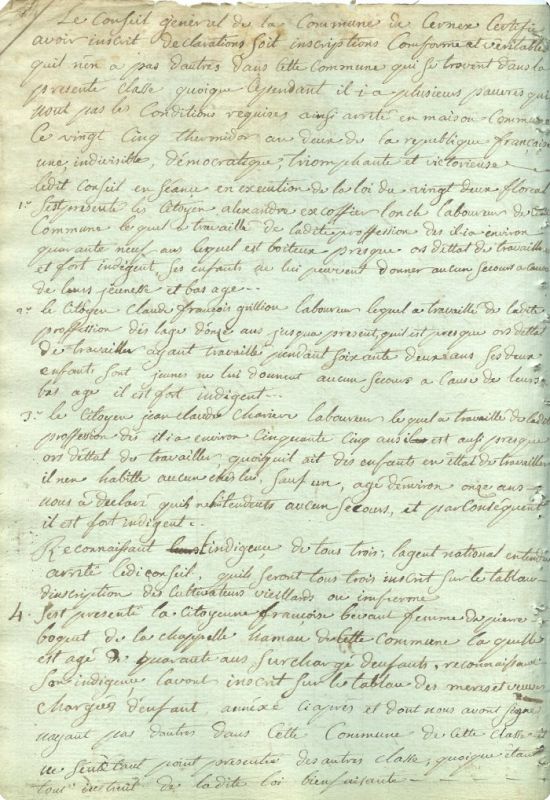 Le Conseil general de la Commune de Cernex Certifie
avoir inscrit declarations soit inscriptions Comforme et veritables
quil nen a pas dautres dans Cette Commune qui se trovent dans la
presente Classe quoique Cependant il i a plusieurs pauvres qui
nont pas les Conditions requises ainsi arreté en maison Commune
Ce vingt Cinq thermidor an deux de la republique française
une, indivisible, démocratique, triomphante et victorieuse
ledit Conseil en séance en execution de la loi du vingt deux floreal
1.° Sest presenté le Citoyen alexandre excoffier laboureur de
Commune lequel a travaillé de ladite proffession dès il i a environ
quarante neuf ans lequel est boiteux presque ors détat de travailler
et fort indigent ses enfants ne lui peuvent donner aucun secours a cause
de leurs jeunesse et bas age
2.° le Citoyen Claude françois grillion laboureur lequel a travaillé de ladite
proffession dès lage donze ans jusqua present, quil est presque ors détat
de travailler ayant travaillé pendant soixante deux ans ses deux
enfants sont jeunes ne lui donnent aucun secours a Cause de leurs
bas age il est fort indigent
3.° le Citoyen jean Claude Mariere laboureur lequel a travaillé de ladite
proffession dès il i a environ Cinquante Cinq ans est aussi presque
ors détat de travailler, quoiquil ait des enfants en état de travailler
il nen habitte aucun ches lui, sauf un, agé denviron onze ans
nous a declaré quils aucun secours, et par Conséquent
il est fort indigent
Reconnaissant lindigence de tous trois, lagent national entendu
arrette ledi Conseil, quils seront tous trois inscrit sur le tableau
dinscription des Cultivateurs vieillards ou infirme
4. Sest presenté la Citoyenne françoise femme de pierre
boquet de la chappelle hamau de Cette Commune la quelle
est agé de quarante ans surchargé denfants, reconnaissant
son indigence lavont inscrit sur le tablau des meres et veuves
chargées denfant annexé Ciaprès et dont nous avons signé
nayant pas dautres dans Cette Commune de Cette Classe
ne point presenté des autres Classe, quoique étant
tous de ladite loi bienfaisante